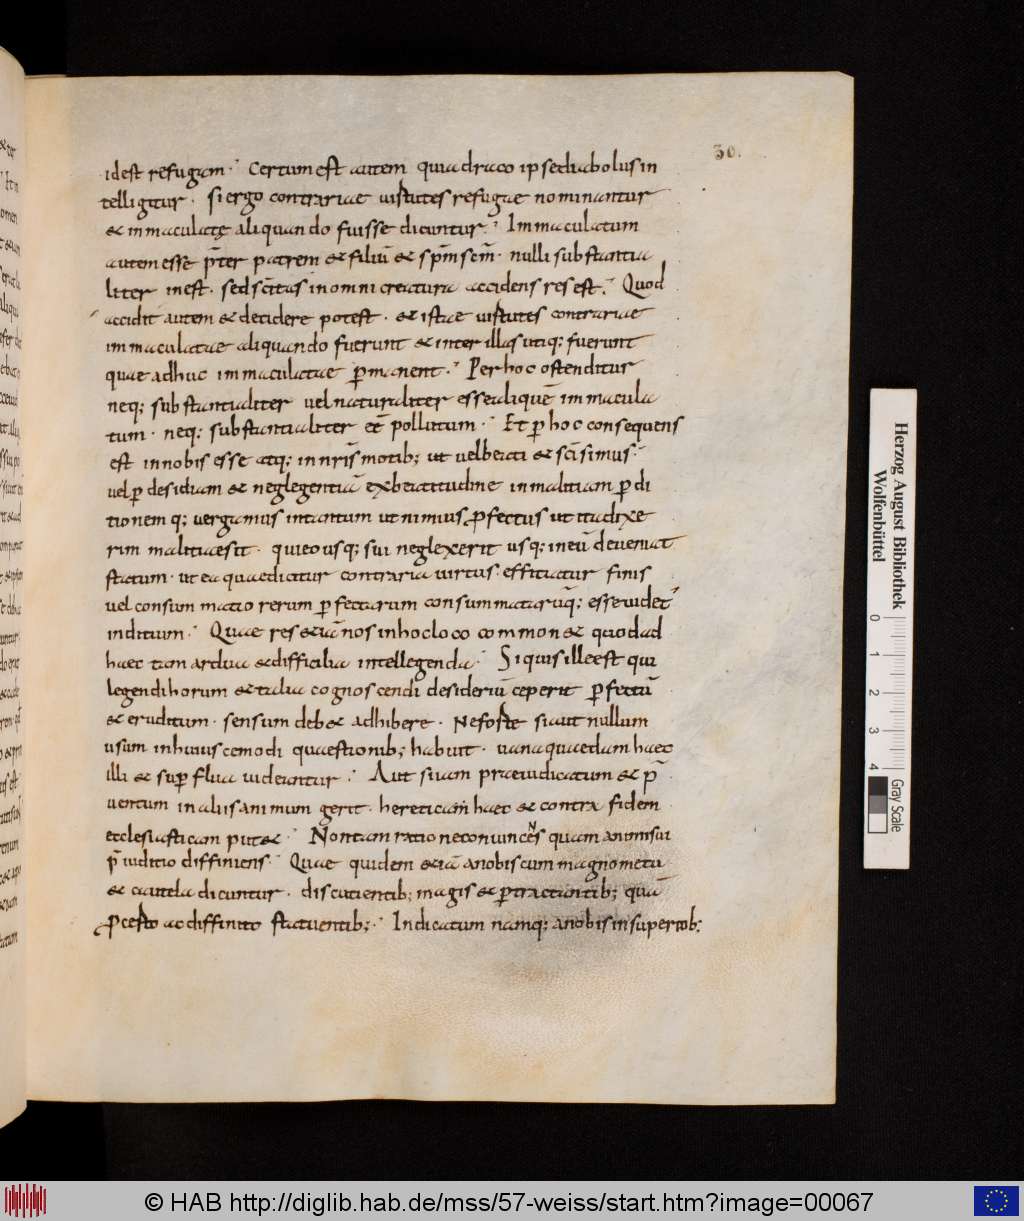 30.
idest refugam · Certum est autem quia draco ipse diabolus in
telligitur · si ergo contrariae uirtutes refugae nominantur
& inmaculatę aliquando fuisse dicuntur · Immaculatum
autem esse p̄ter patrem & filiū & sp̄m sc̄m · nulli substantia
liter inest · sed sc̄itas in omni creatura accidens res est · Quod
accidit autem & decidere potest · & istae uirtutes contrariae
immaculatae aliquando fuerunt & inter illas utiq; fuerunt
quae adhuc immaculatae ꝑmanent · Per hoc ostenditur
neq; substantialiter uel naturaliter esse aliquē immacula
tum · neq; substantialiter eē pollutum · Et ꝑ hoc consequens
est in nobis esse atq; in nr̄is motib; ut uel beati & sc̄i simus ·
uel ꝑ desidiam & neglegentiā ex beatitudine in malitiam ꝑdi
tionemq; uergamus in tantum ut nimius ꝓfectus ut ita dixe
rim malitiae sit · qui eousq; sui neglexerit usq; in eū deueniat
statum · ut ea quae dicitur contraria uirtus · efficiatur finis
uel consummatio rerum ꝑfectarum consummatarūq; esse uidet̄
inditium · Quae res & iā nos in hoc loco common& quod ad
haec tam ardua & difficilia intellegenda · Si quis ille est qui
legendi horum & talia cognoscendi desideriū ceperit ꝑfectū
& eruditum · sensum deb& adhibere · Ne forte sicut nullum
usum in huiuscemodi quaestionib; habuit · uana quaedam haec
illi & suꝑflua uideantur · Aut si iam praeiudicatum & p̄
uentum in aliis animum gerit · hereticam haec & contra fidem
ecclesiasticam put& · Non tam ratione conuincēs quam animi sui
p̄iuditio diffiniens · Quae quidem & iā a nobis cum magno metu
& cautela dicuntur · discutientib; magis & ꝑtractantib; quā
ꝓ certo ac diffinito statuentib; · Indicatum namq; a nobis in superiorib;
Herzog August Bibliothek
Wolfenbüttel
0 1 2 3 4
Gray Scale
© HAB http://diglib.hab.de/mss/57-weiss/start.htm?image=00067